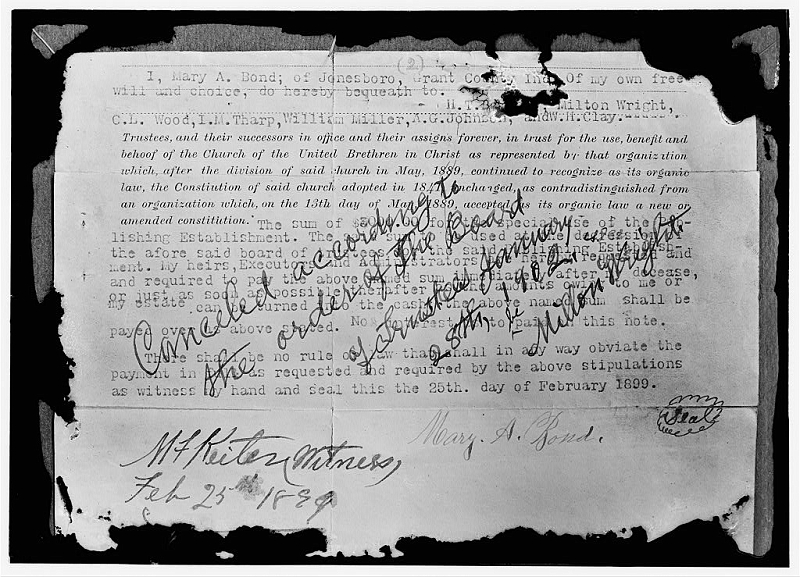 (2)
I, Mary A. Bond; of Jonesboro, Grant County Ind. Of my own free
will and choice, do hereby bequeath to.
H.T. Milton Wright,
C.L. Wood, I.M.Tharp, William Miller, A.G.Johnson, and W.H.Clay.-----
Trustees, and their successors in office and their assigns forever, in trust for the use, benefit and
behoof of the Church of the United Brethren in Christ as represented by that organization
which, after the division of said church in May, 1889, continued to recognize as its organic
law, the Constitution of said church adopted in 1841, unchanged, as contradistinguished from
an organization which, on the 13th day of May, 1889, accepted as its organic law a new or
amended constitution. The sum of for the special use of the
lishing Establishment. The used at the discression of
the afore said board of trustees of the said Publishing Establish-
ment. My heirs, Executors and Administrators are hereby and
and required to pay the above named sum immediately after my decease,
or just as soon as possible thereafter amounts owing to me or
my estate can be turned into cash. the above named sum shall be
payed over as above stated. No interest to be paid on this note.
There shall be no rule of law that shall in any way obviate the
payment in full as requested and required by the above stipulations
as witness my hand and seal this the 25th. day of February 1899.
Cancelled according to
the order of the Board
of Trustees January
28th, 1902.
Milton Wright
Mary. A. Bond.
Seal
(Witness)
Feb 25th 1899